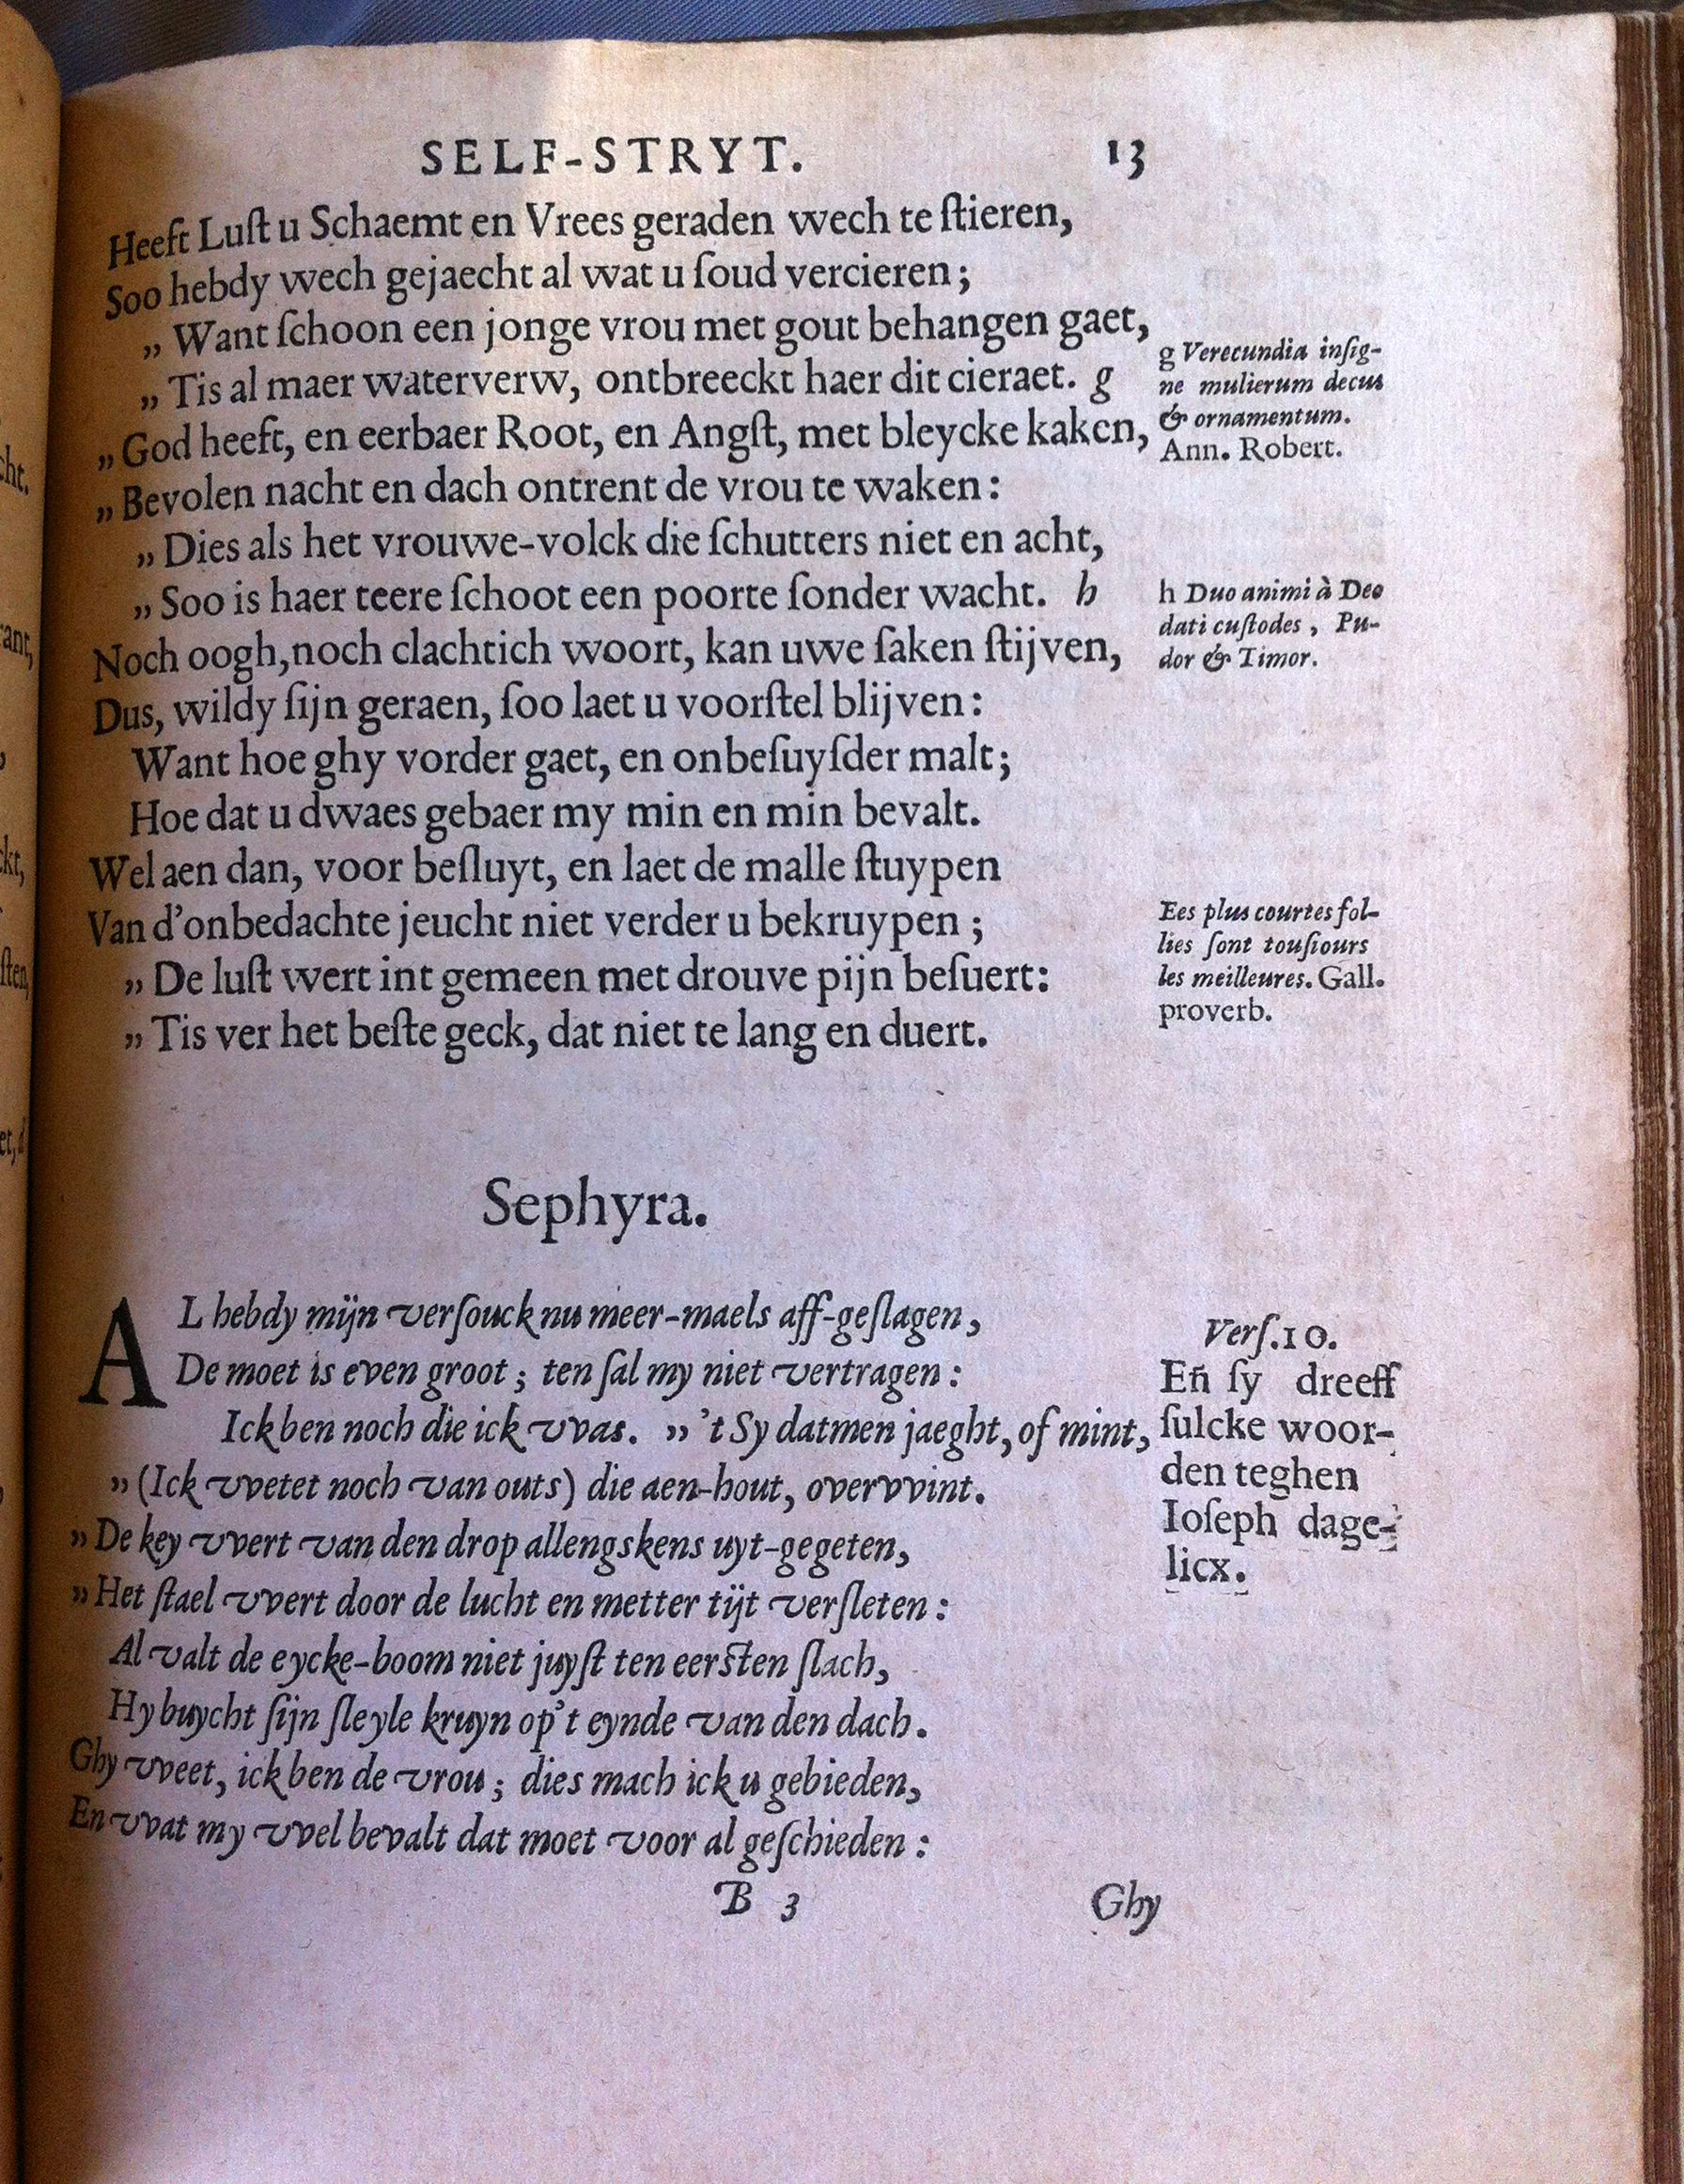 SELF-STRYT. 13
Heeft Luſt u Schaemt en Vrees geraden wech te ſtieren,
Soo hebdy wech gejaecht al wat u ſoud vercieren;
„ Want ſchoon een jonge vrou met gout behangen gaet,
„ Tis al maer waterverw, ontbreeckt haer dit cieraet. g
„ God heeft, en eerbaer Root, en Angſt, met bleycke kaken,
„ Bevolen nacht en dach ontrent de vrou te waken:
„ Dies als het vrouwe-volck die ſchutters niet en acht,
„ Soo is haer teere ſchoot een poorte ſonder wacht. h
Noch oogh, noch clachtich woort, kan uwe ſaken ſtijven,
Dus, wildy ſijn geraen, ſoo laet u voorſtel blijven:
Want hoe ghy vorder gaet, en onbeſuyſder malt;
Hoe dat u dwaes gebaer my min en min bevalt.
Wel aen dan, voor beſluyt, en laet de malle ſtuypen
Van d'onbedachte jeucht niet verder u bekruypen;
„ De luſt wert int gemeen met drouve pijn beſuert:
„ Tis ver het beſte geck, dat niet te lang en duert.
g Verecundia inſig-
ne mulierum decus
& ornamentum.
Ann. Robert.
h Duo animi à Deo
dati cuſtodes, Pu-
dor & Timor.
Ees plus courtes fol-
lies ſont touſiours
les meilleures. Gall.
proverb.
Sephyra.
AL hebdy mijn verſouck nu meer-maels aff-geſlagen,
De moet is even groot; ten ſal my niet vertragen:
Ick ben noch die ick vvas. „ 't Sy datmen jaeght, of mint,
„ (Ick vvetet noch van outs) die aen-hout, overvvint.
„ De key vvert van den drop allengskens uyt-gegeten,
„ Het ſtael vvert door de lucht en metter tijt verſleten:
Al valt de eycke-boom niet juyſt ten eerſten ſlach,
Hy buycht ſijn ſleyle kruyn op't eynde van den dach.
Ghy vveet, ick ben de vrou; dies mach ick u gebieden,
En vvat my vvel bevalt dat moet voor al geſchieden:
Verſ. 10.
Eñ ſy dreeff
ſulcke woor-
den teghen
Ioſeph dage-
licx.
B 3 Ghy